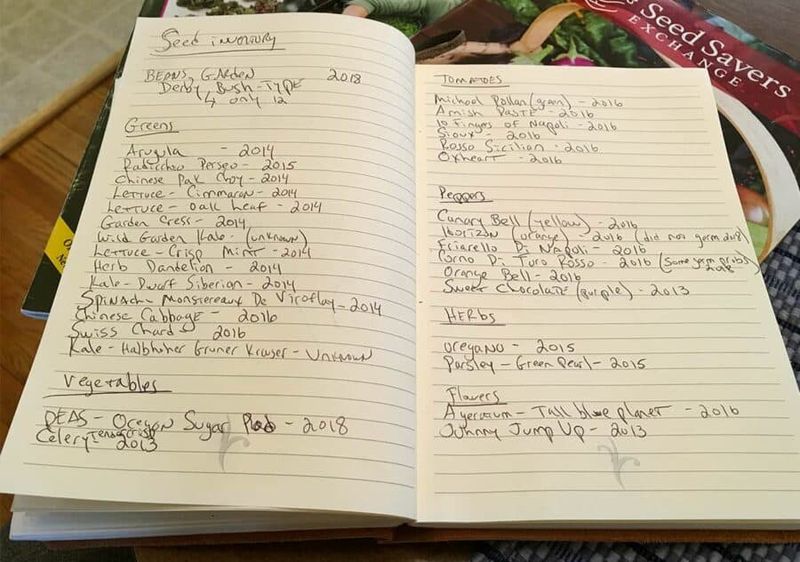 Seed inventory
BEANS, GARDEN 2018
Derby, Bush-Type
↳ only 12
Greens
Arugula - 2014
Radicchio Perseo - 2015
Chinese Pak Choy - 2014
Lettuce - Cimmaron - 2014
Lettuce - Oak Leaf - 2014
Garden Cress - 2014
Wild Garden Kale - (unknown)
Lettuce - Crisp Mint - 2014
Herb Dandelion - 2014
Kale - Dwarf Siberian - 2014
Spinach - Monstereaux De Viroflay - 2014
Chinese Cabbage - 2016
Swiss Chard - 2016
Kale - Halbhoher Gruner Krauser - Unknown
Vegetables
PEAS - Oregon Sugar Pod - 2018
Celery Tendercrisp 2013
TOMATOES
Michael Pollan (green) - 2016
Amish PASTE - 2016
10 Fingers of Napoli - 2016
Sioux - 2016
Rosso Sicilian - 2016
Oxheart - 2016
Peppers
Canary Bell (yellow) - 2016
Horizon (orange) - 2016 (did not germ 2018)
Friarello Di Napoli - 2016
Corno Di Toro Rosso - 2016 (some germ probs 2018)
Orange Bell - 2016
Sweet Chocolate (purple) - 2013
HERbs
Oregano - 2015
Parsley - Green Pearl - 2015
Flowers
Ageratum - Tall blue planet - 2016
Johnny Jump Up - 2013
Seed Savers
EXCHANGE